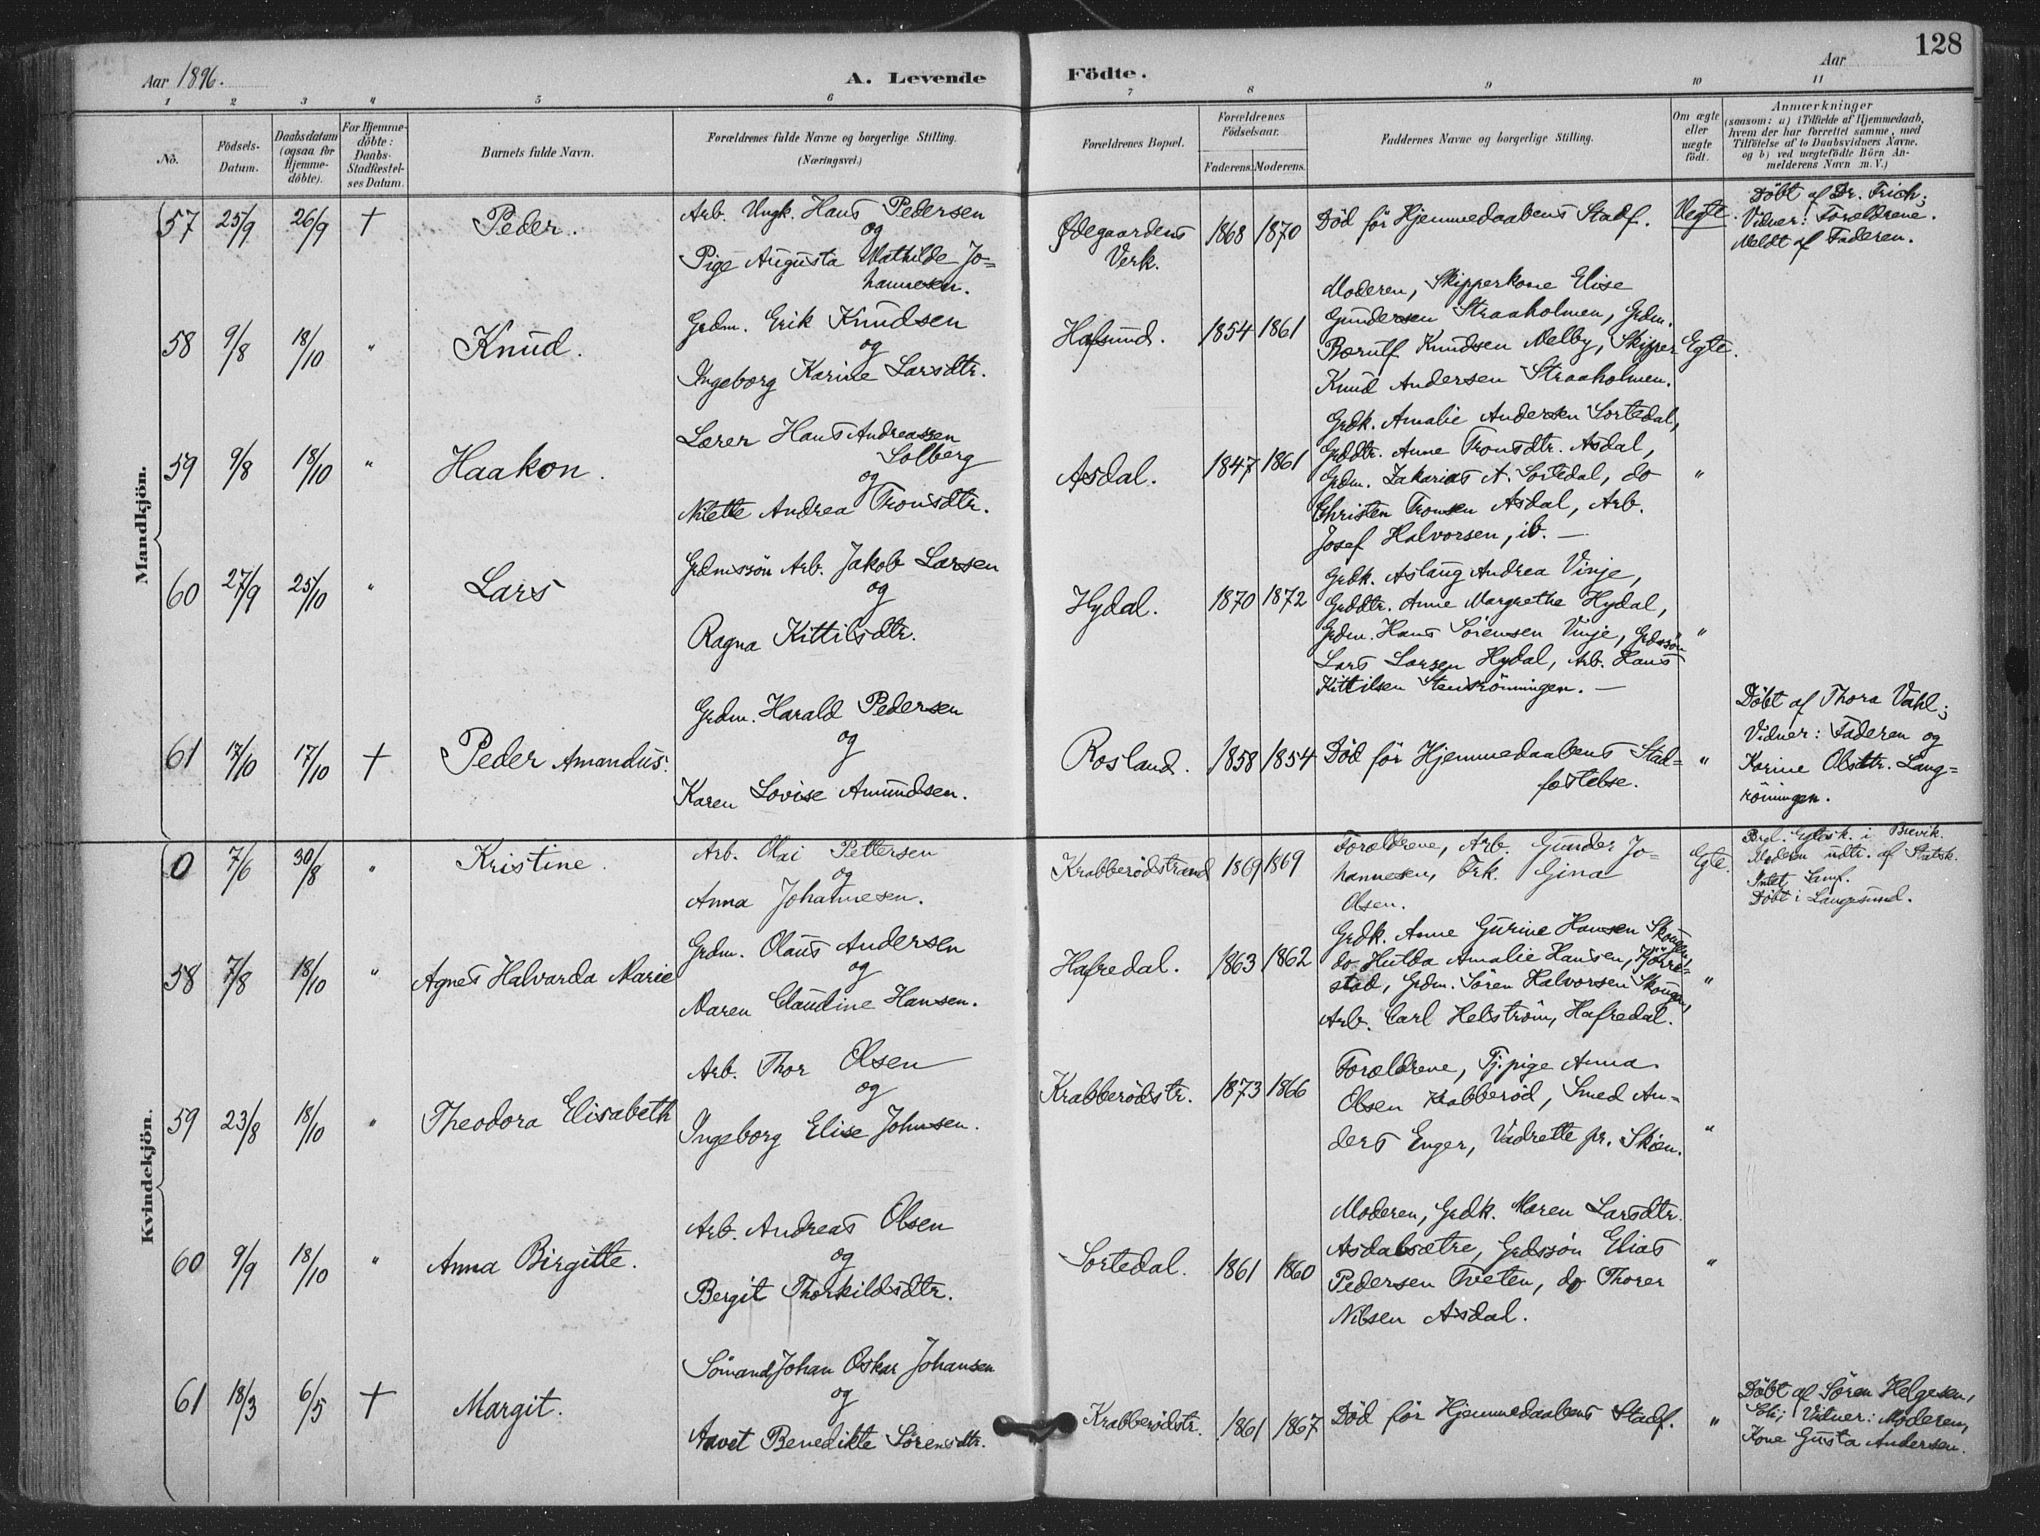 128
Aar 1896.
A. Levende Födte.
Aar
1 2 3 4 5 6 7 8 9 10 11
No.
Födsels-Datum.
Daabsdatum (ogsaa for Hjemme-döbte).
For Hjemme-döbte: Daabs-Stadfæstel-ses Datum.
Barnets fulde Navn.
Forældrenes fulde Navne og borgerlige Stilling.
(Næringsvei.)
Forældrenes Bopæl.
Forældrenes Födselsaar.
Faderens. Moderens.
Faddernes Navne og borgerlige Stilling.
Om ægte eller uægte födt.
Anmærkninger
(saasom: a) i Tilfælde af Hjemmedaab,
hvem der har forrettet samme, med
Tilföielse af to Daabsvidners Navne,
og b) ved uægtefödte Börn An-
melderens Navn m. V.)
Mandkjön.
57 25/9 26/9 + Peder.
Arb. Ungk. Hans Pedersen
og
Pige Augusta Mathilde Jo=
hannesen.
Ødegaardens
Verk.
1868 1870
Död för Hjemmedaabens Stadf.
Uegte.
Döbt af Dr. Frich;
Vidner: Foreldrene.
Meldt af Faderen.
58 9/8 18/10 " Knud.
Grdm. Erik Knudsen
og
Ingeborg Karine Larsdtr.
Hafsund. 1854 1861
Moderen, Skipperkone Elise
Gundersen Straaholmen, Grdm.
Bærulf Knudsen Melby, Skipper
Knud Andersen Straaholmen.
Egte.
59 9/8 18/10 " Haakon.
Lærer Hans Andreassen
Solberg
og
Nilette Andrea Tronsdtr.
Asdal. 1847 1861
Grdk. Amalie Andersen Sortedal,
Grddtr. Anne Tronsdtr. Asdal,
Grdm. Zakarias A. Sortedal, do
Christen Tronsen Asdal, Arb.
Josef Halvorsen, ib. —
"
60 27/9 25/10 " Lars
Grdmssön Arb. Jakob Larsen
og
Ragna Kittilsdtr.
Hydal. 1870 1872
Grdk. Aslaug Andrea Vinje,
Grddtr. Anne Margrethe Hydal,
Grdm. Hans Sörensen Vinje, Grdssön
Lars Larsen Hydal, Arb. Hans
Kittilsen Stenrönningen. —
"
61 17/10 17/10 + Peder Amandus.
Grdm. Harald Pedersen
og
Karen Lovise Amundsen.
Rosland. 1858 1854
Död för Hjemmedaabens Stad=
fæstelse.
"
Döbt af Thora Vahl;
Vidner: Faderen og
Karine Olsdtr. Lang=
rönningen.
Kvindekjön.
0 7/6 30/8 " Kristine.
Arb. Olai Pettersen
og
Anna Johannesen.
Krabberödstrand 1869 1869
Forældrene, Arb. Gunder Jo=
hannesen, Frk. Gina
Olsen.
Egte.
Brgl. Egtesk. i Brevik.
Moderen udtr. af Statsk.
Intet Samf.
Döbt i Langesund.
58 7/8 18/10 " Agnes Halvarda Marie
Grdm. Olaus Andersen
og
Maren Claudine Hansen.
Hafredal. 1863 1862
Grdk. Anne Gurine Hansen Skougen,
do Hulda Amalie Hansen, Tjörre=
stad, Grdm. Sören Halvorsen Skougen,
Arb. Carl Helström, Hafredal.
"
59 23/8 18/10 " Theodora Elisabeth
Arb. Thor Olsen
og
Ingeborg Elise Johnsen.
Krabberödstr. 1873 1866
Forældrene, Tj.pige Anna
Olsen Krabberöd, Smed An=
ders Enger, Vadrette pr. Skien.
"
60 9/9 18/10 " Anna Birgitte.
Arb. Andreas Olsen
og
Bergit Thorkildsdtr.
Sortedal. 1861 1860
Moderen, Grdk. Maren Larsdtr.
Asdalsætre, Grdssön Elias
Pedersen Tveten, do Thorer
Nilsen Asdal.
"
61 18/3 6/5 + Margit.
Sömand Johan Oskar Johansen
og
Anvet Benedikte Sörensdtr.
Krabberödstr. 1861 1867
Död för Hjemmedaabens Stadf.
"
Döbt af Sören Helgesen,
Vidner: Moderen,
Kone Gusta Andersen.